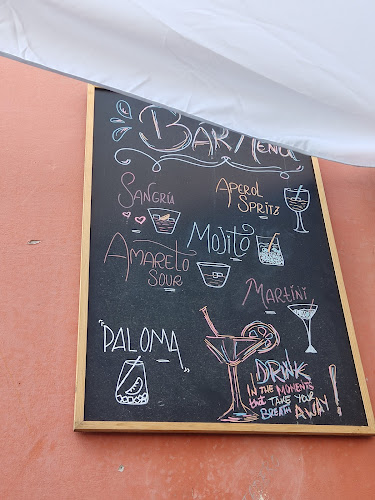 BAR MENU
SANGRÍA
APEROL
SPRITZ
MOJITO
AMARETO
SOUR
MARTINI
"PALOMA"
DRINK
IN THE MOMENTS
that TAKE YOUR
BREATH AWAY!